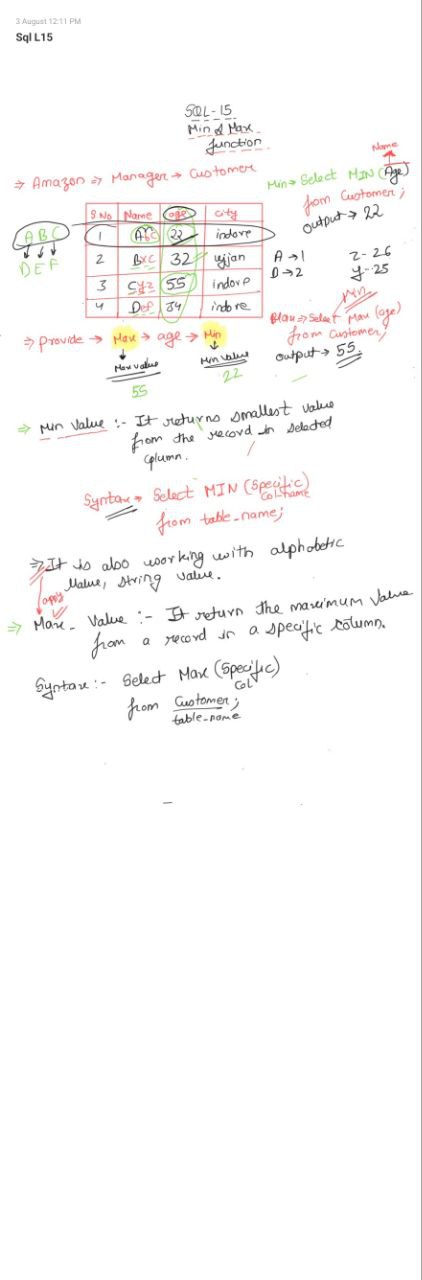 3 August 12:11 PM
Sql L15
SQL-15
Min & Max
function
⇒ Amazon ⇒ Manager → Customer
Name
Min → Select MIN (Age)
from Customer;
output → 22
S No Name age City
1 Abc 22 indore
2 Bxc 32 ujjan
3 Cyz 55 indore
4 Def 34 indore
A B C
D E F
A → 1 Z - 26
D → 2 y - 25
Min
Max ⇒ Select Max (age)
from Customer;
output → 55
⇒ provide → Max → age → Min
Max value
55
Min Value
22
⇒ Min Value :- It returns smallest value
from the record in selected
column.
Syntax → Select MIN (Specific)
Col name
from table_name;
⇒ It is also working with alphabetic
Value, string value.
apply
⇒ Max - Value :- It return the maximum value
from a record in a specific column.
Syntax :- Select Max (Specific)
Col
from Customer;
table_name